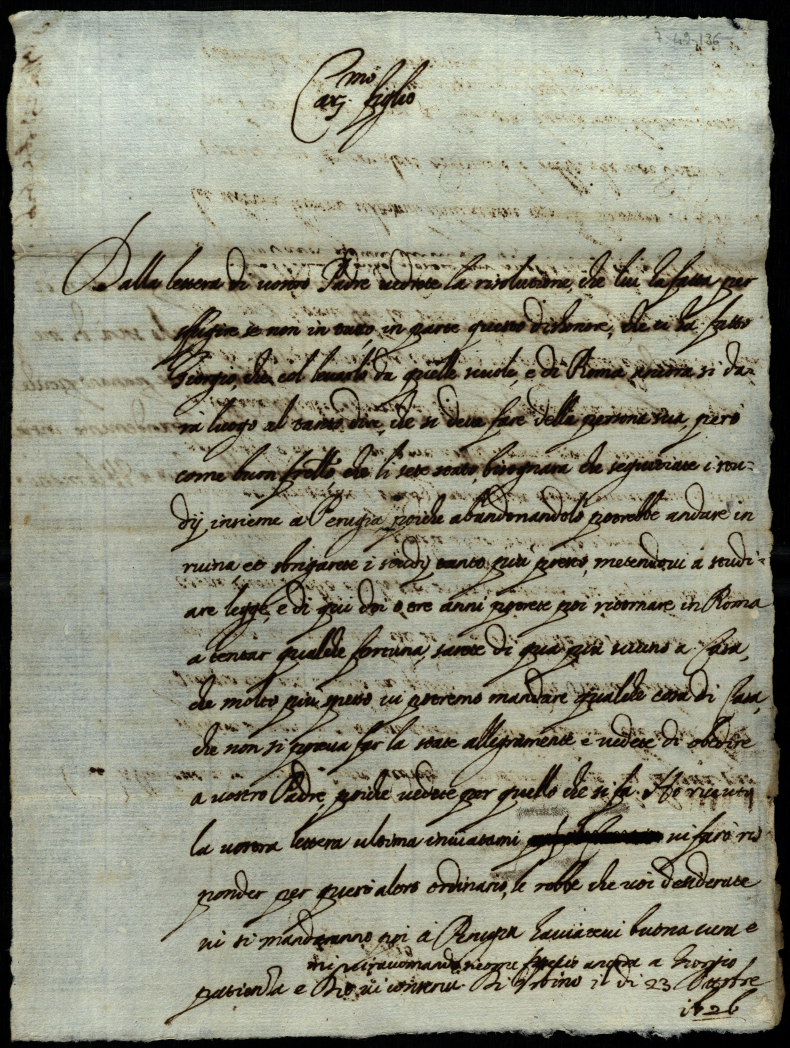 7-49-136
Car.mo figlio
Dalla lettera di vostro Padre vedrete la risolutione, che lui ha fatta per
sfugire se non in tutto, in parte questo dishonore, che ci ha fatto
Giorgio, che col levarlo da quelle scuole, e di Roma ancora si da-
rà luogo al tanto dire, che si deve fare della persona sua, però
come buon frello, che li sete stato, bisognarà che seguitiate i stu-
dij insieme a Perugia, poiche abandonandolo potrebbe andare in
ruina et sbrigarete i studij tanto più presto, metendovi a studi-
are legge, e di qui doi o tre anni potrete poi ritornare in Roma
a tentar qualche fortuna, sarete di qua più vicino a Casa,
che molto più spesso vi potremo mandare qualche cosa di Casa,
che non si poteva far la state allegramente e vedete di obedire
a vostro Padre, poiche vedete per quello che si fa. Ho ricevuto
la vostra lettera ultima inviatami vi farò ris
ponder per quest altro ordinario, le robbe che voi desiderate
vi si mandaranno poi a Perugia habbiatevi buona cura e
mi raccomando a Giorgio
patienza e Dio vi conservi Di Urbino il dì 23
1626